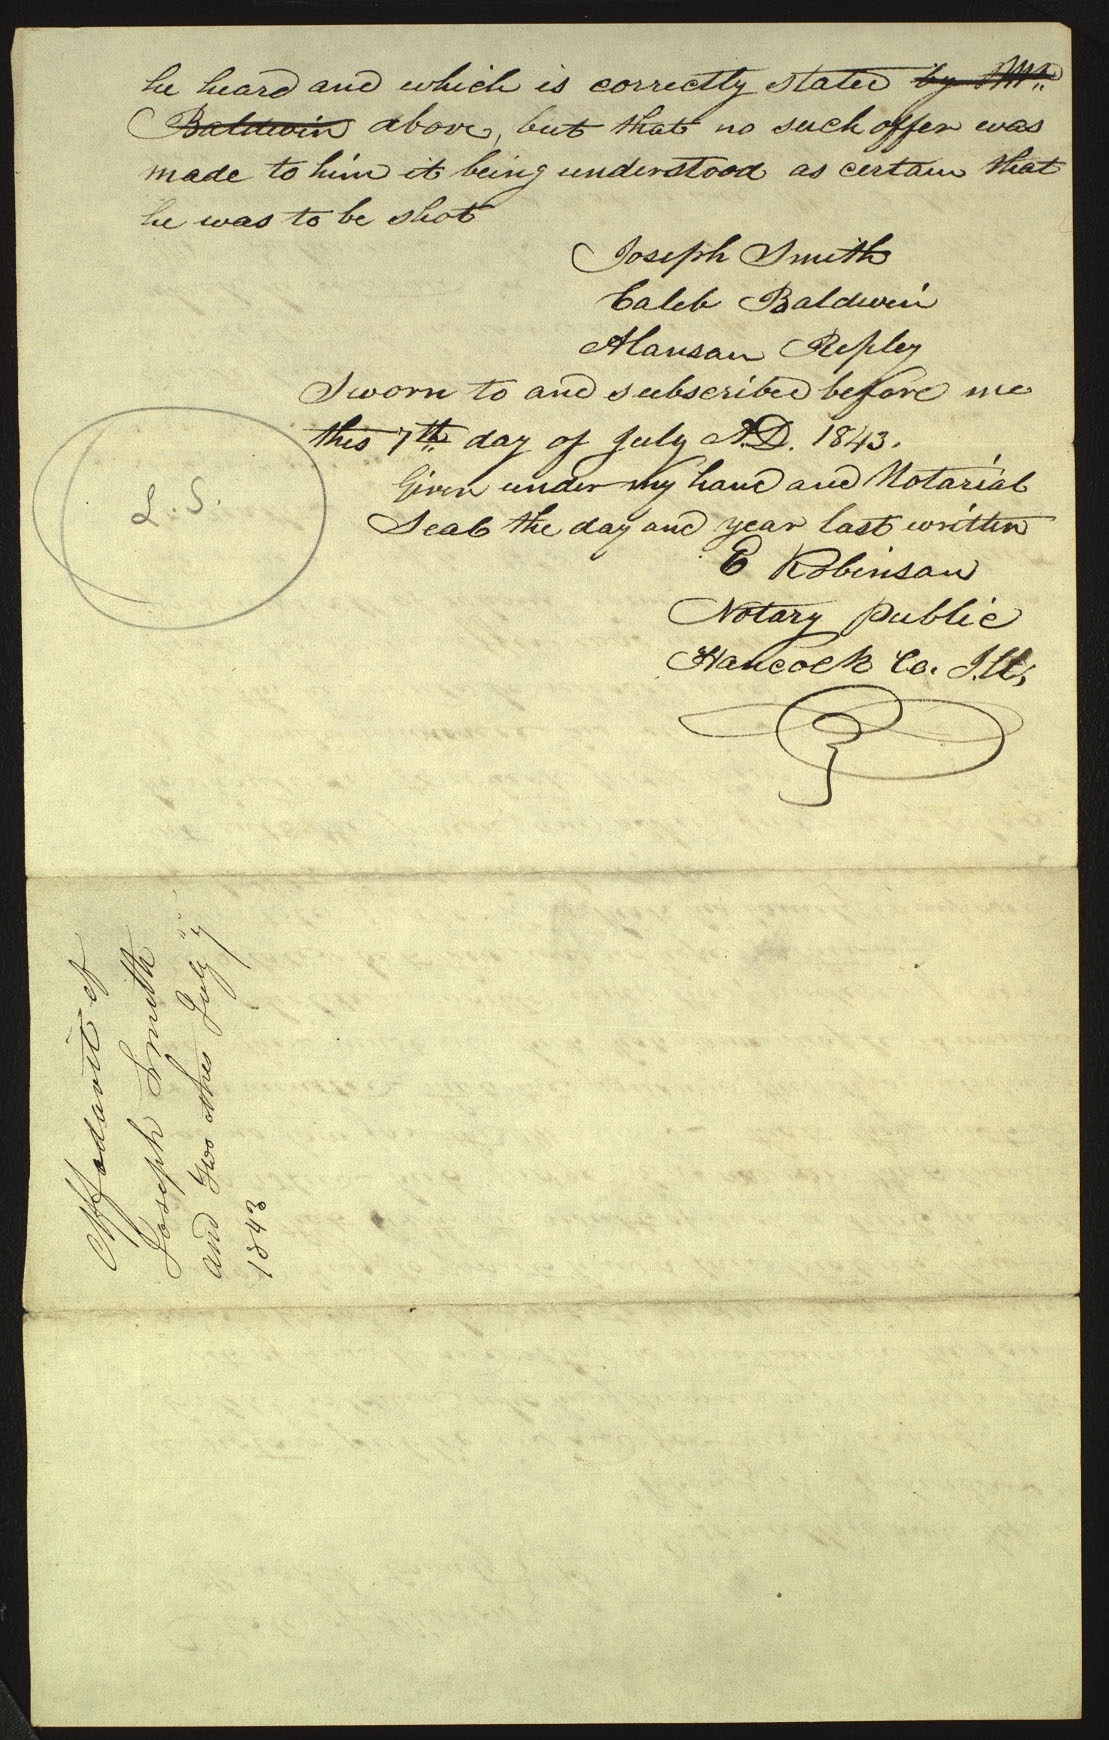 he heard and which is correctly stated by Mr.
Baldwin above, but that no such offer was
made to him it being understood as certain that
he was to be shot
Joseph Smith
Caleb Baldwin
Alanson Repley
Sworn to and subscribed before me
this 7th day of July A.D. 1843.
Given under my hand and Notarial
Seal the day and year last written
L. S.
E Robinson
Notary Public
Hancock Co. Ill,
Affadavit of
Joseph Smith
and Two others July 7
1843